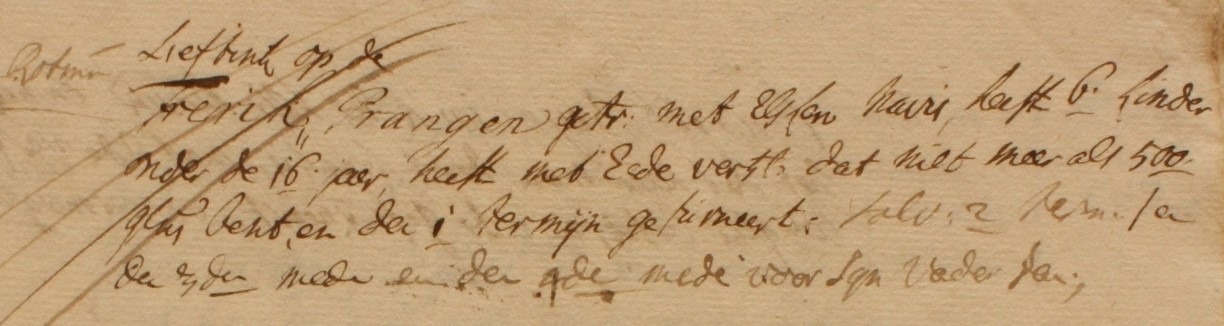 Lieftink op de
Frerik Prangen getr: met Elsken Navis, heeft 6. kinder
onder de 16. jaer, heeft met Eede verkl. dat niet meer als 500
glns bent, en den 1 termijn gefurneert. solv: 2 term.
den 3den mede en den 4de mede voor syn Vader